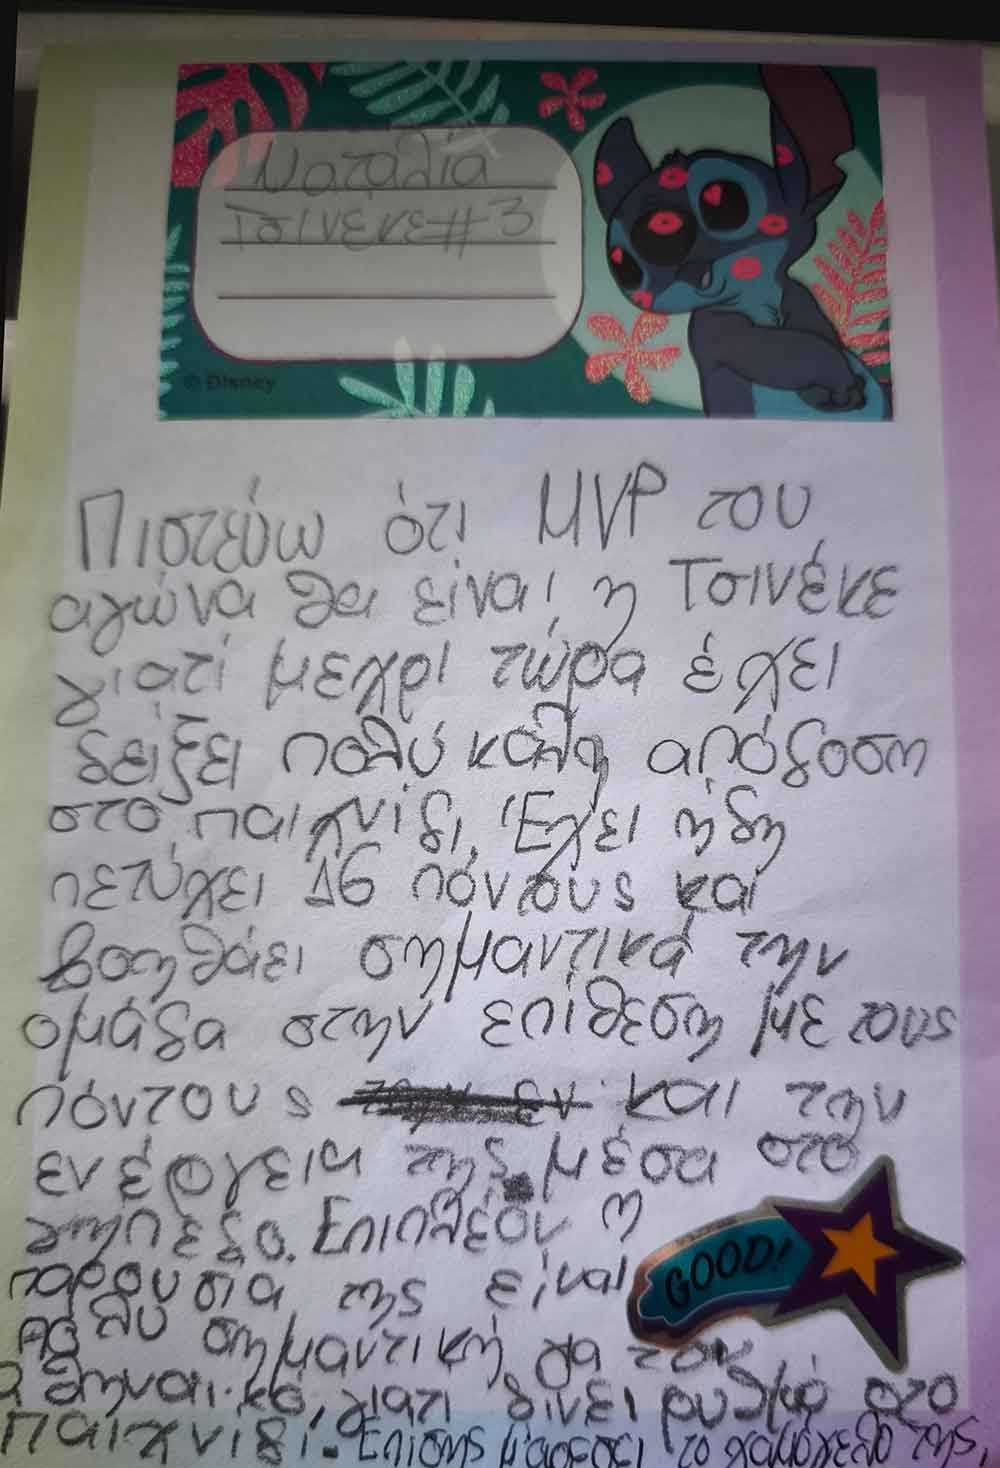 Ναταλία
Τσινεκε#3
© Disney
Πιστεύω ότι MVP του
αγώνα θα είναι η Τσινέκε
γιατί μεχρι τώρα έχει
δείξει πολύ καλη απόδοση
στο παιχνίδι. Έχει ήδη
πετύχει 16 πόντους και
βοηθάει σημαντικά την
ομάδα στην επίθεση με τους
πόντους και την
ενέργεια της μέσα στο
γήπεδο. Επιπλέον η
παρουσία της είναι
GOOD!
πολυ σημαντική για τον
αθηναικό, γιατι δινει ρυθμό στο
παιχνιδι. Επίσης μ'αρεσει το χαμόγελο της,